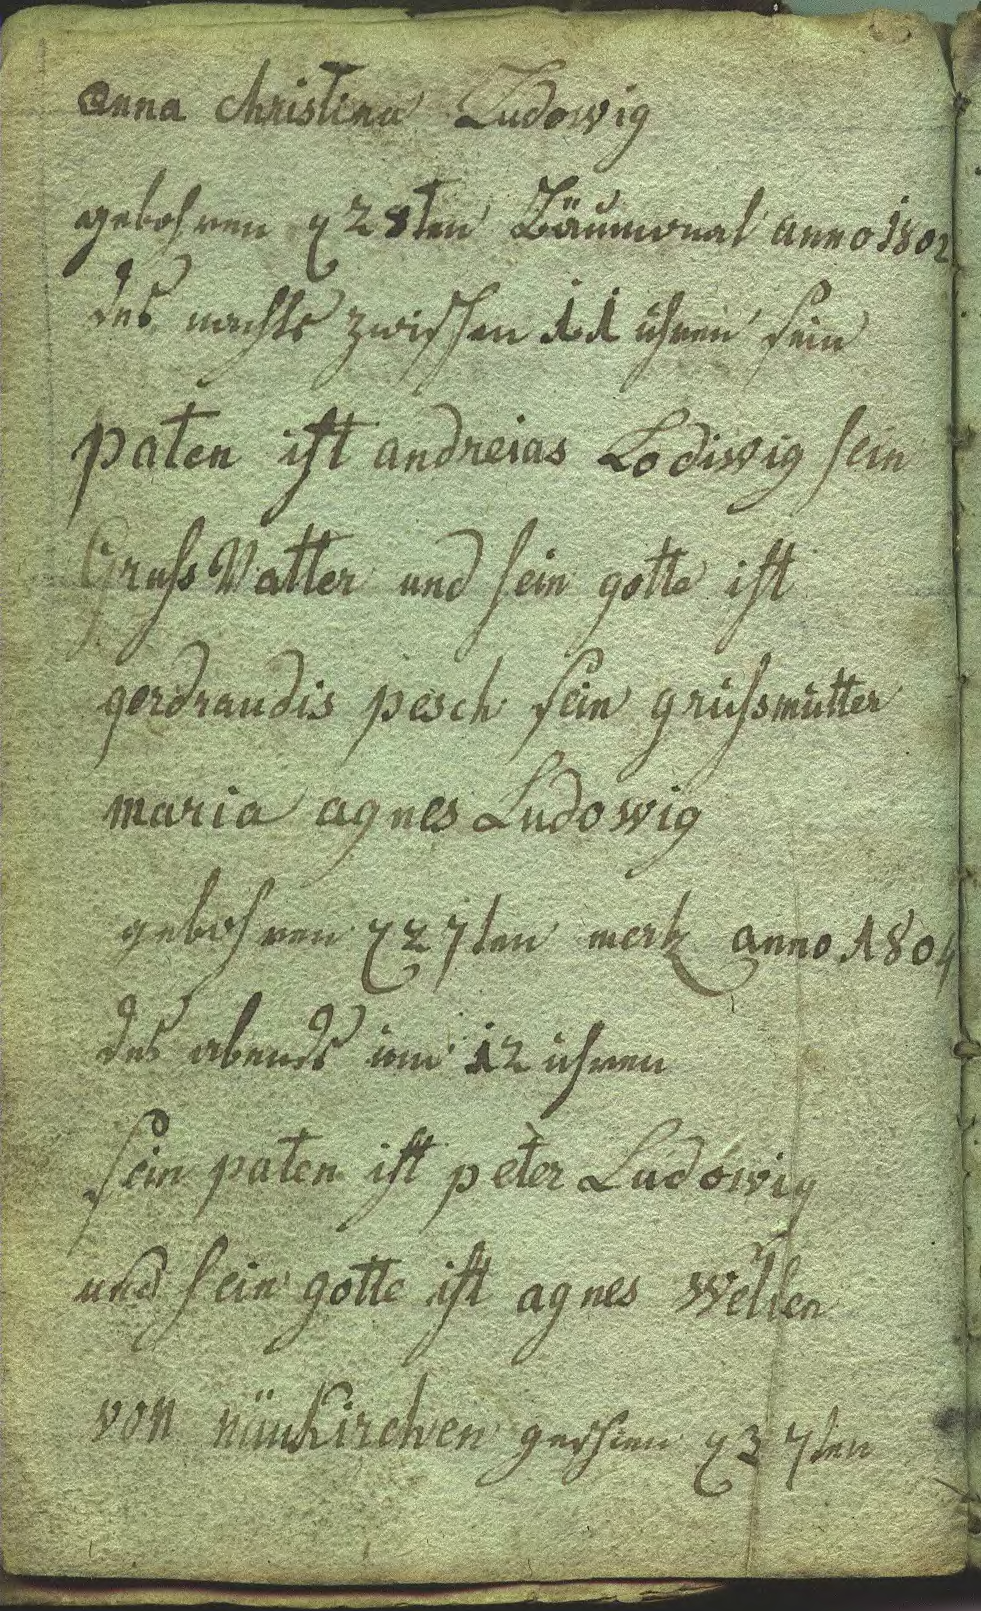 anna christina Ludowig
gebohren d 28ten anno 1802
des nachts zwischen 11 uhren sein
paten ist andreias Lodiwig sein
Gruss Vatter und sein gotte ist
gerdraudis pesch sein grusmutter
maria agnes Ludowig
gebohren d 27ten mertz anno 1804
des abends um 12 uhren
sein paten ist peter Ludowig
und sein gotte ist agnes
von nünkirchen